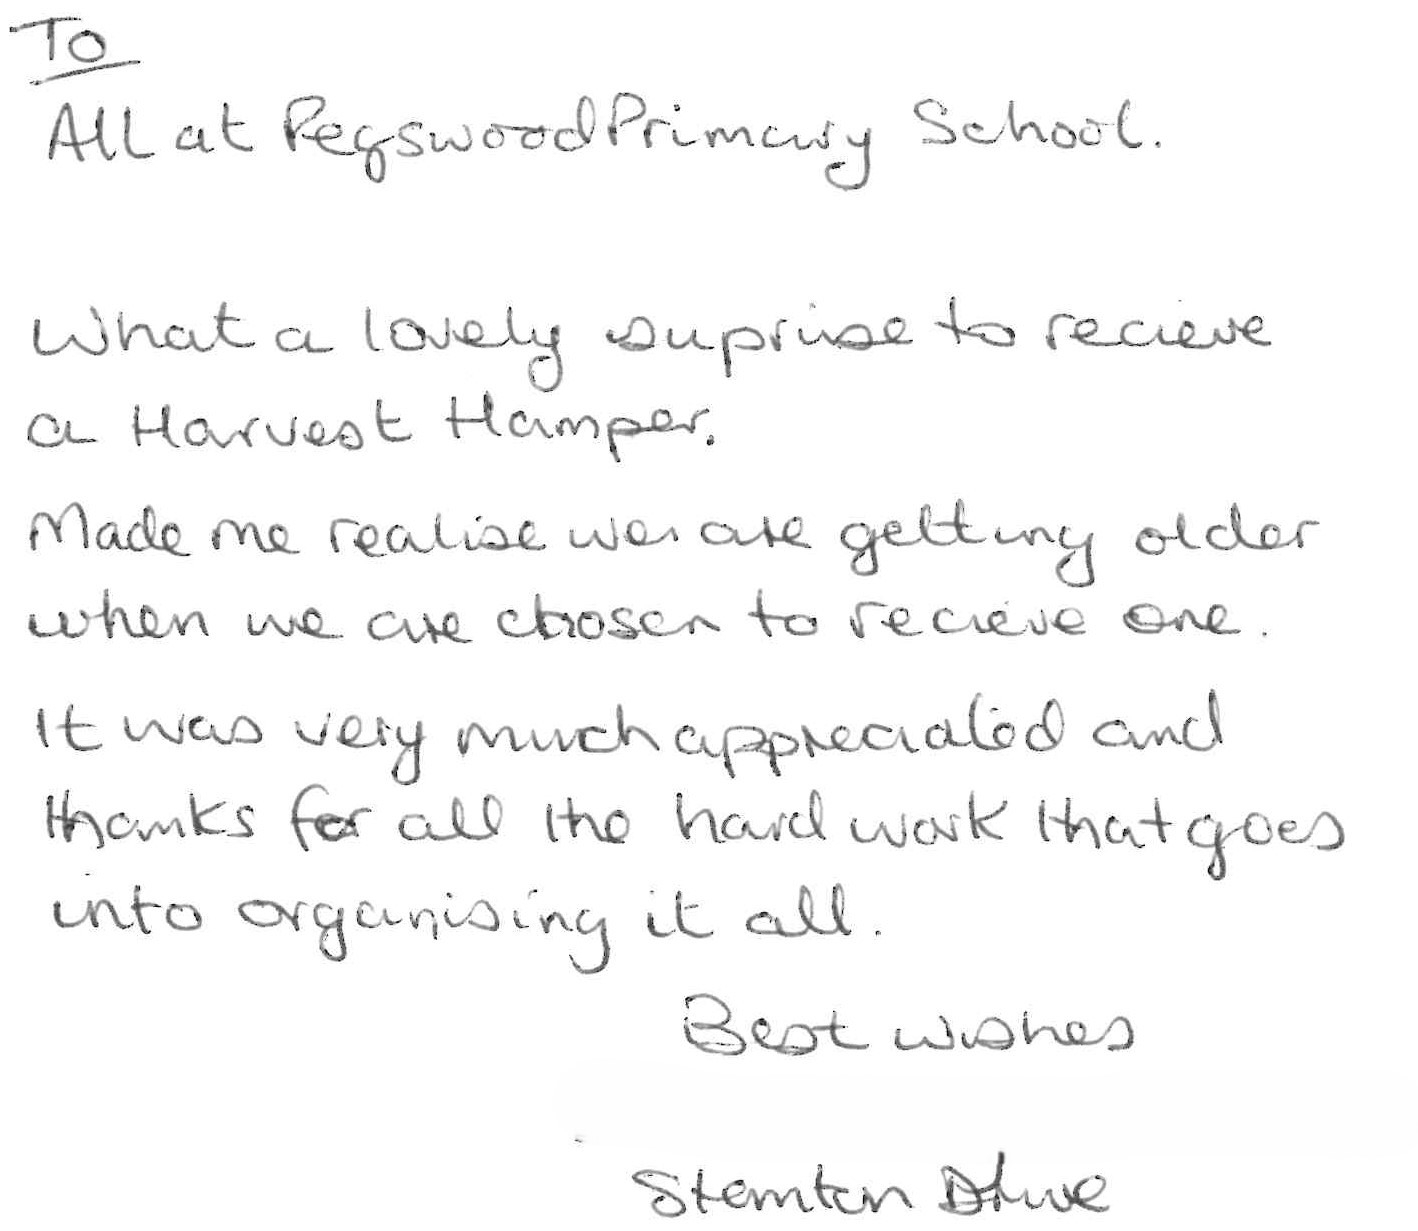 To
All at Pegswood Primary School.
What a lovely suprise to recieve
a Harvest Hamper.
Made me realise we are getting older
when we are chosen to recieve one.
It was very much appreciated and
thanks for all the hard work that goes
into organising it all.
Best wishes
Drive